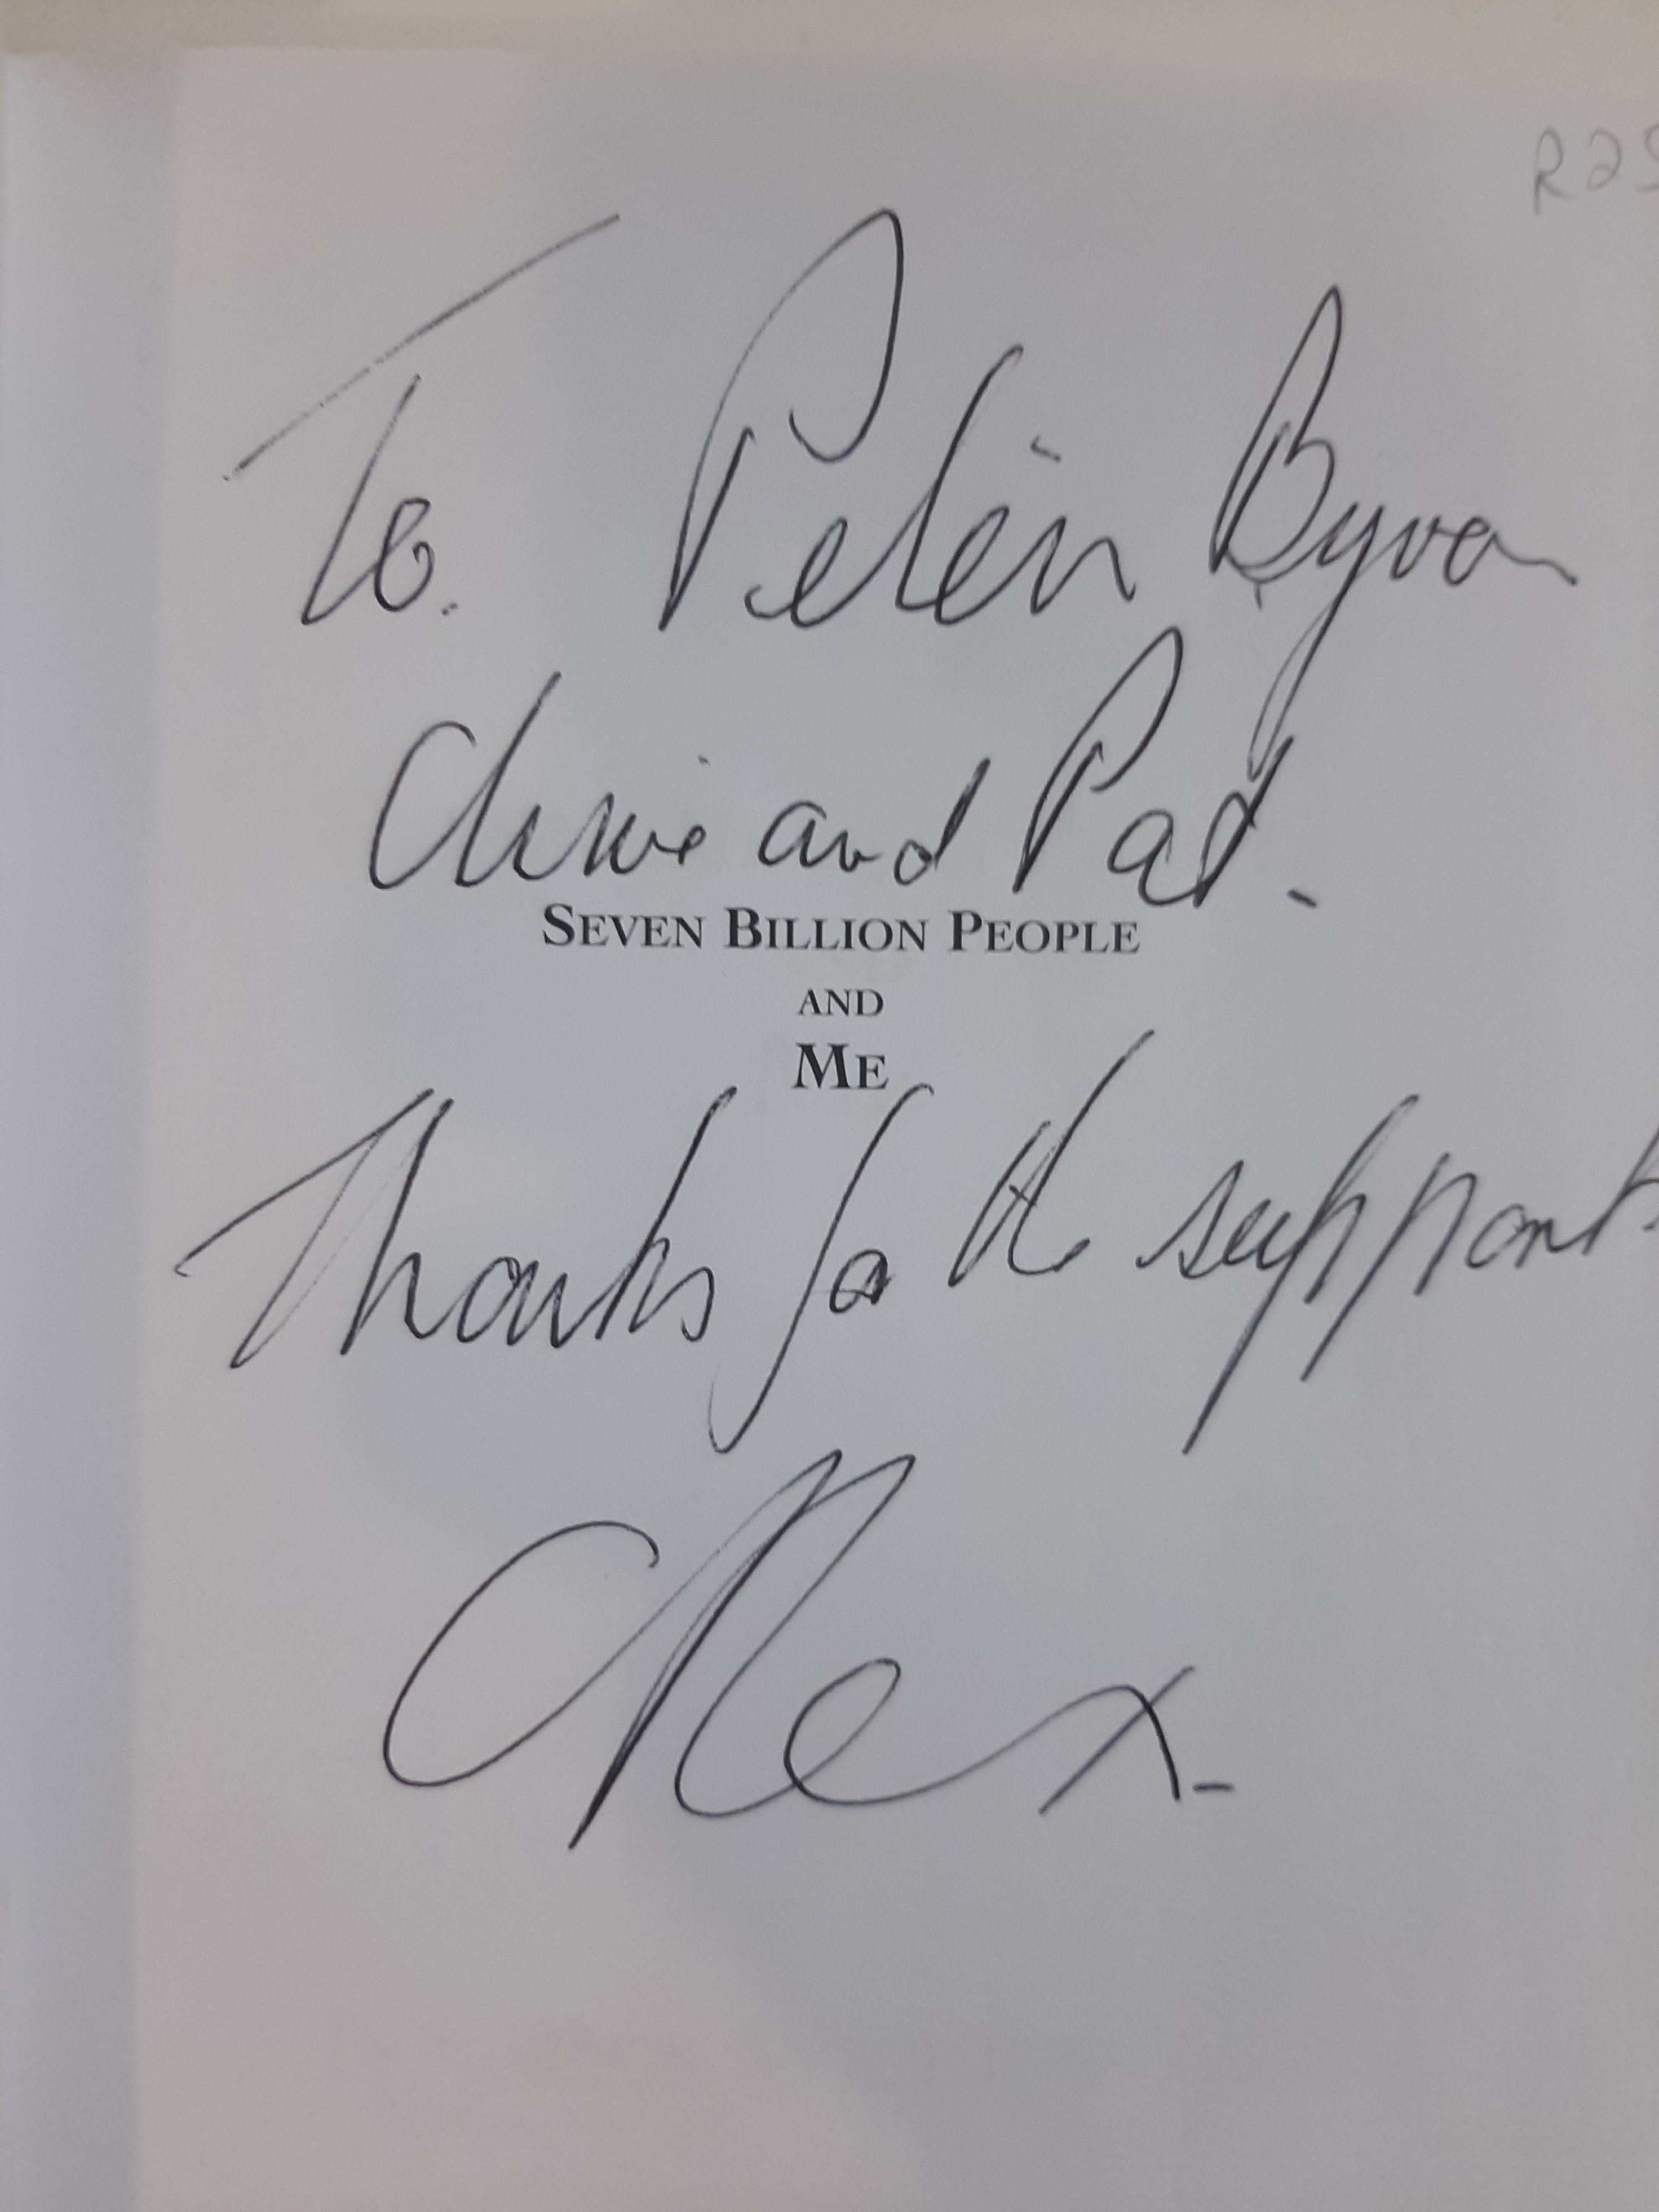 R25
To. Peter Byron
Chris and Pat.
SEVEN BILLION PEOPLE
AND
ME
Thanks for the support.
Alex.